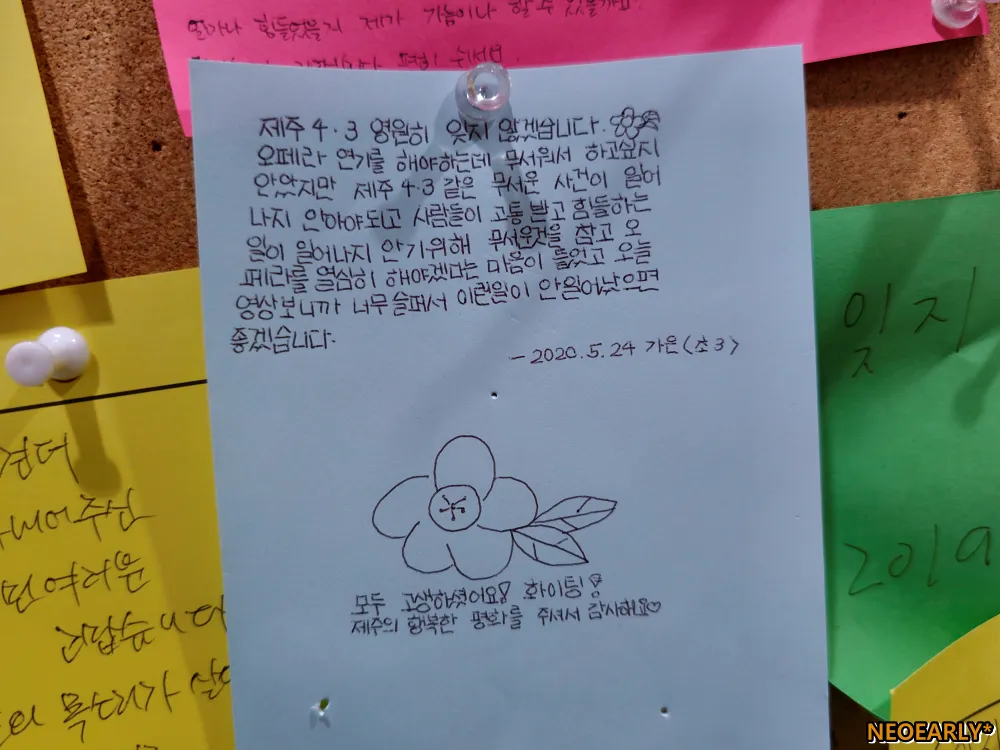 얼마나 힘들었을지 제가 가늠이나 할 수 있을까요?
편히 쉬세요.
제주 4·3 영원히 잊지 않겠습니다.
오페라 연기를 해야하는데 무서워서 하고싶지
안았지만 제주 4·3 같은 무서운 사건이 일어
나지 안아야되고 사람들이 고통 받고 힘들하는
일이 일어나지 안기위해 무서운것을 참고 오
페라를 열심히 해야겠다는 마음이 들었고 오늘
영상보니까 너무슬퍼서 이런일이 안일어났으면
좋겠습니다.
-2020.5.24 가은(초3)
모두 고생하셨어요! 화이팅!
제주의 행복한 평화를 주셔서 감사해요♡
잊지
2019
견뎌
내어주신
여러분
목소리가
NEOEARLY*